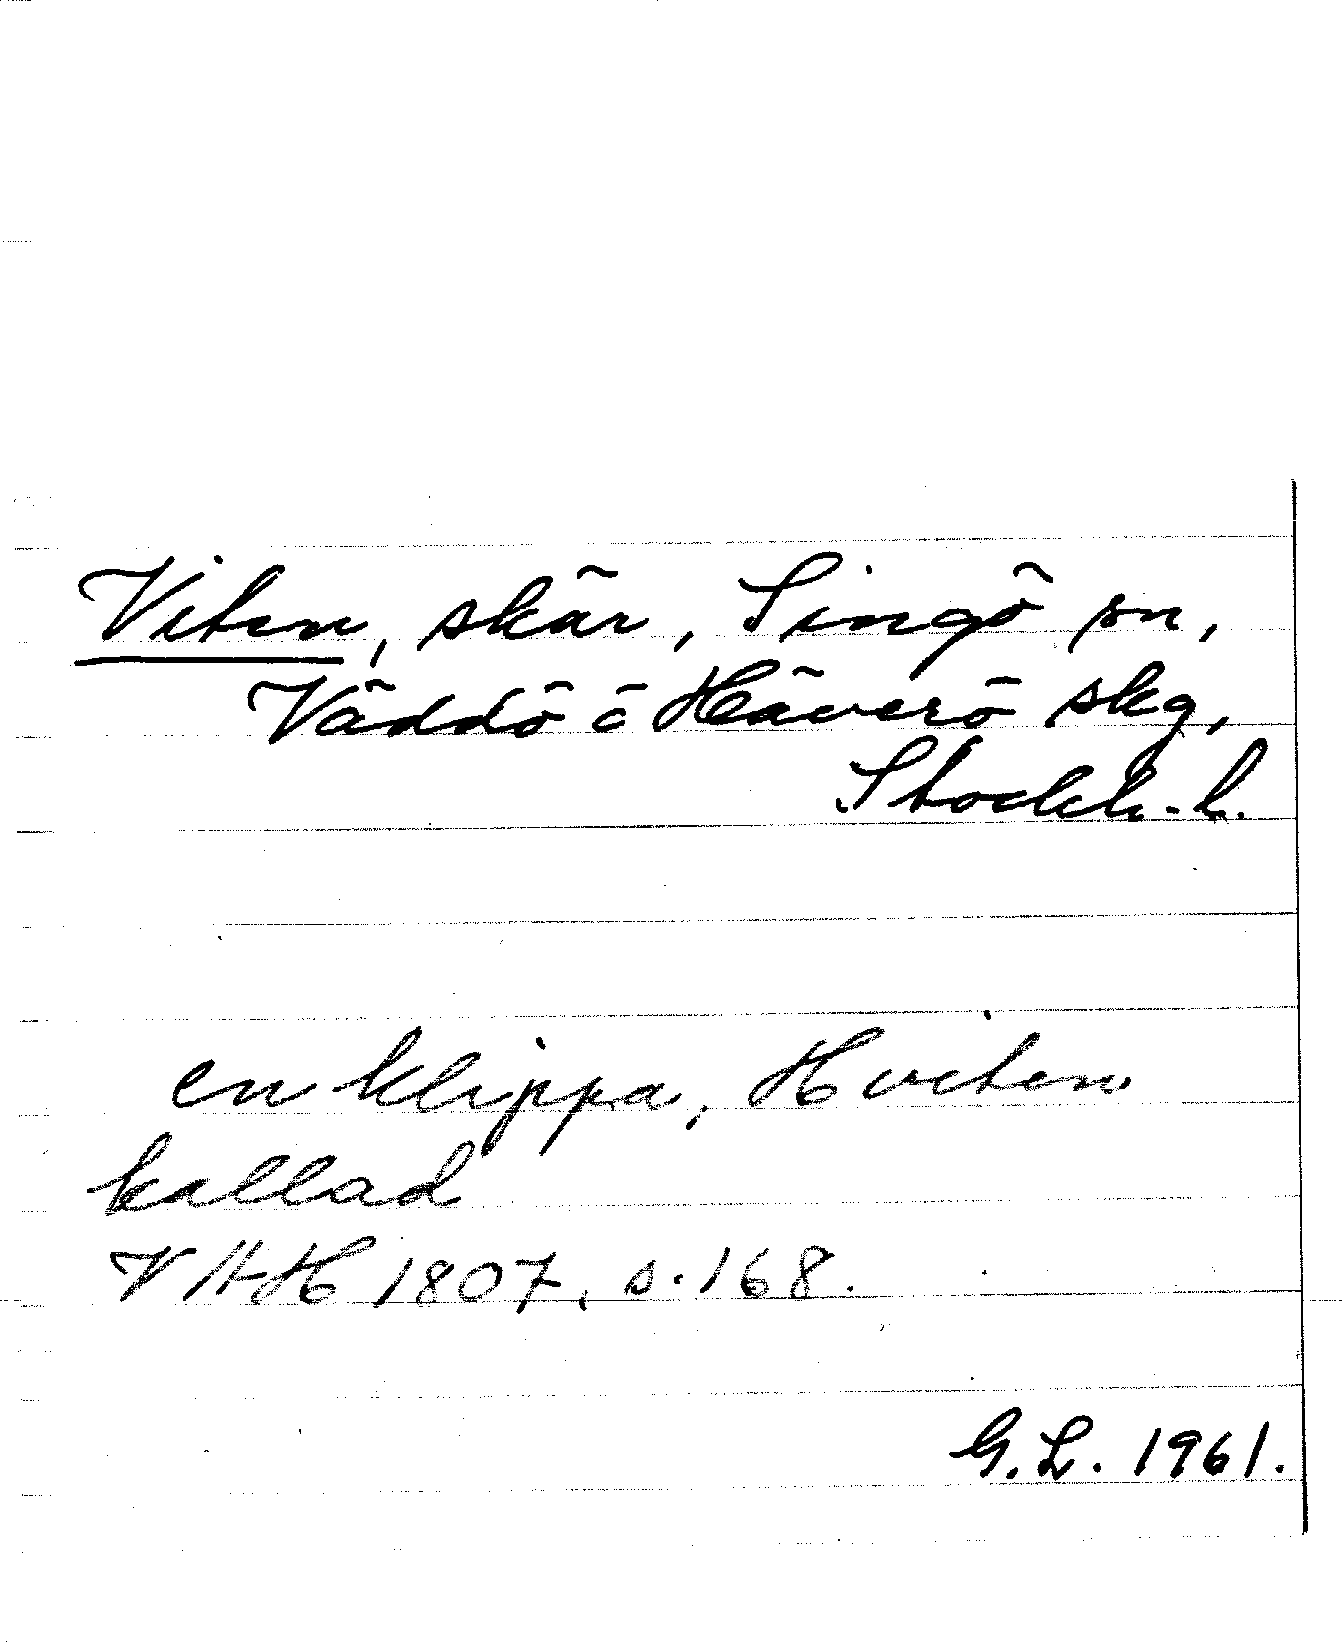 Viten, skär, Singö sn,
Väddö o Häverö skg,
Stockh. l.
en klippa, Hviten
kallad
VHH 1807, s. 168.
G.L. 1961.